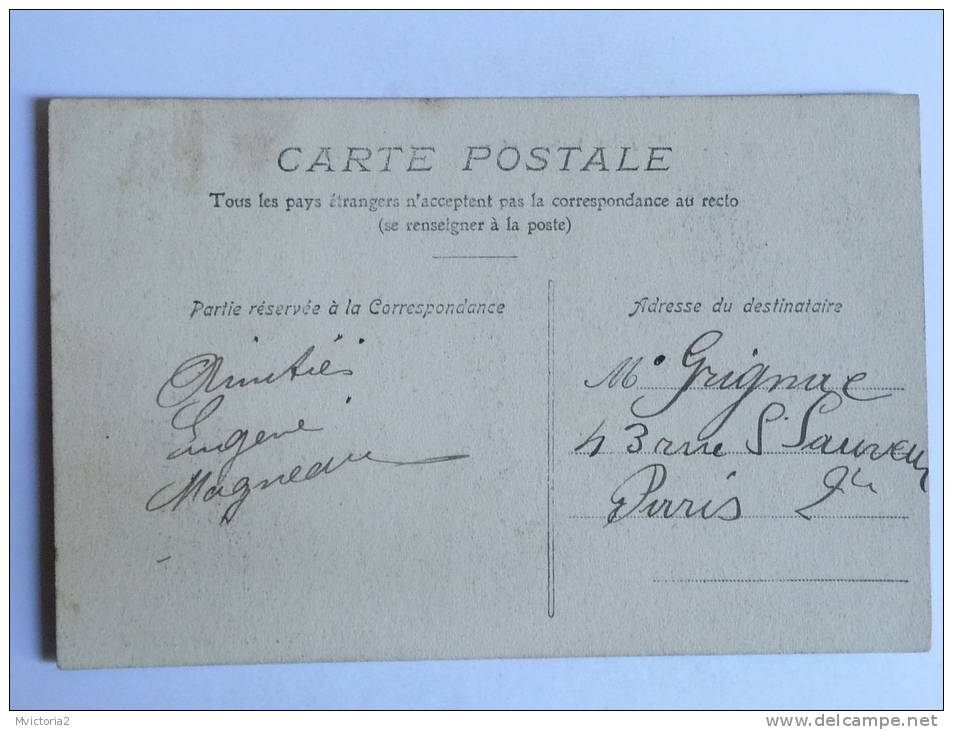 CARTE POSTALE
Tous les pays étrangers n'acceptent pas la correspondance au recto
(se renseigner à la poste)
Partie réservée à la Correspondance
Amitiés
Eugène
Adresse du destinataire
Mr Grignac
43 rue St Sauveur
Paris 2e
Mvictoria2
www.delcampe.net